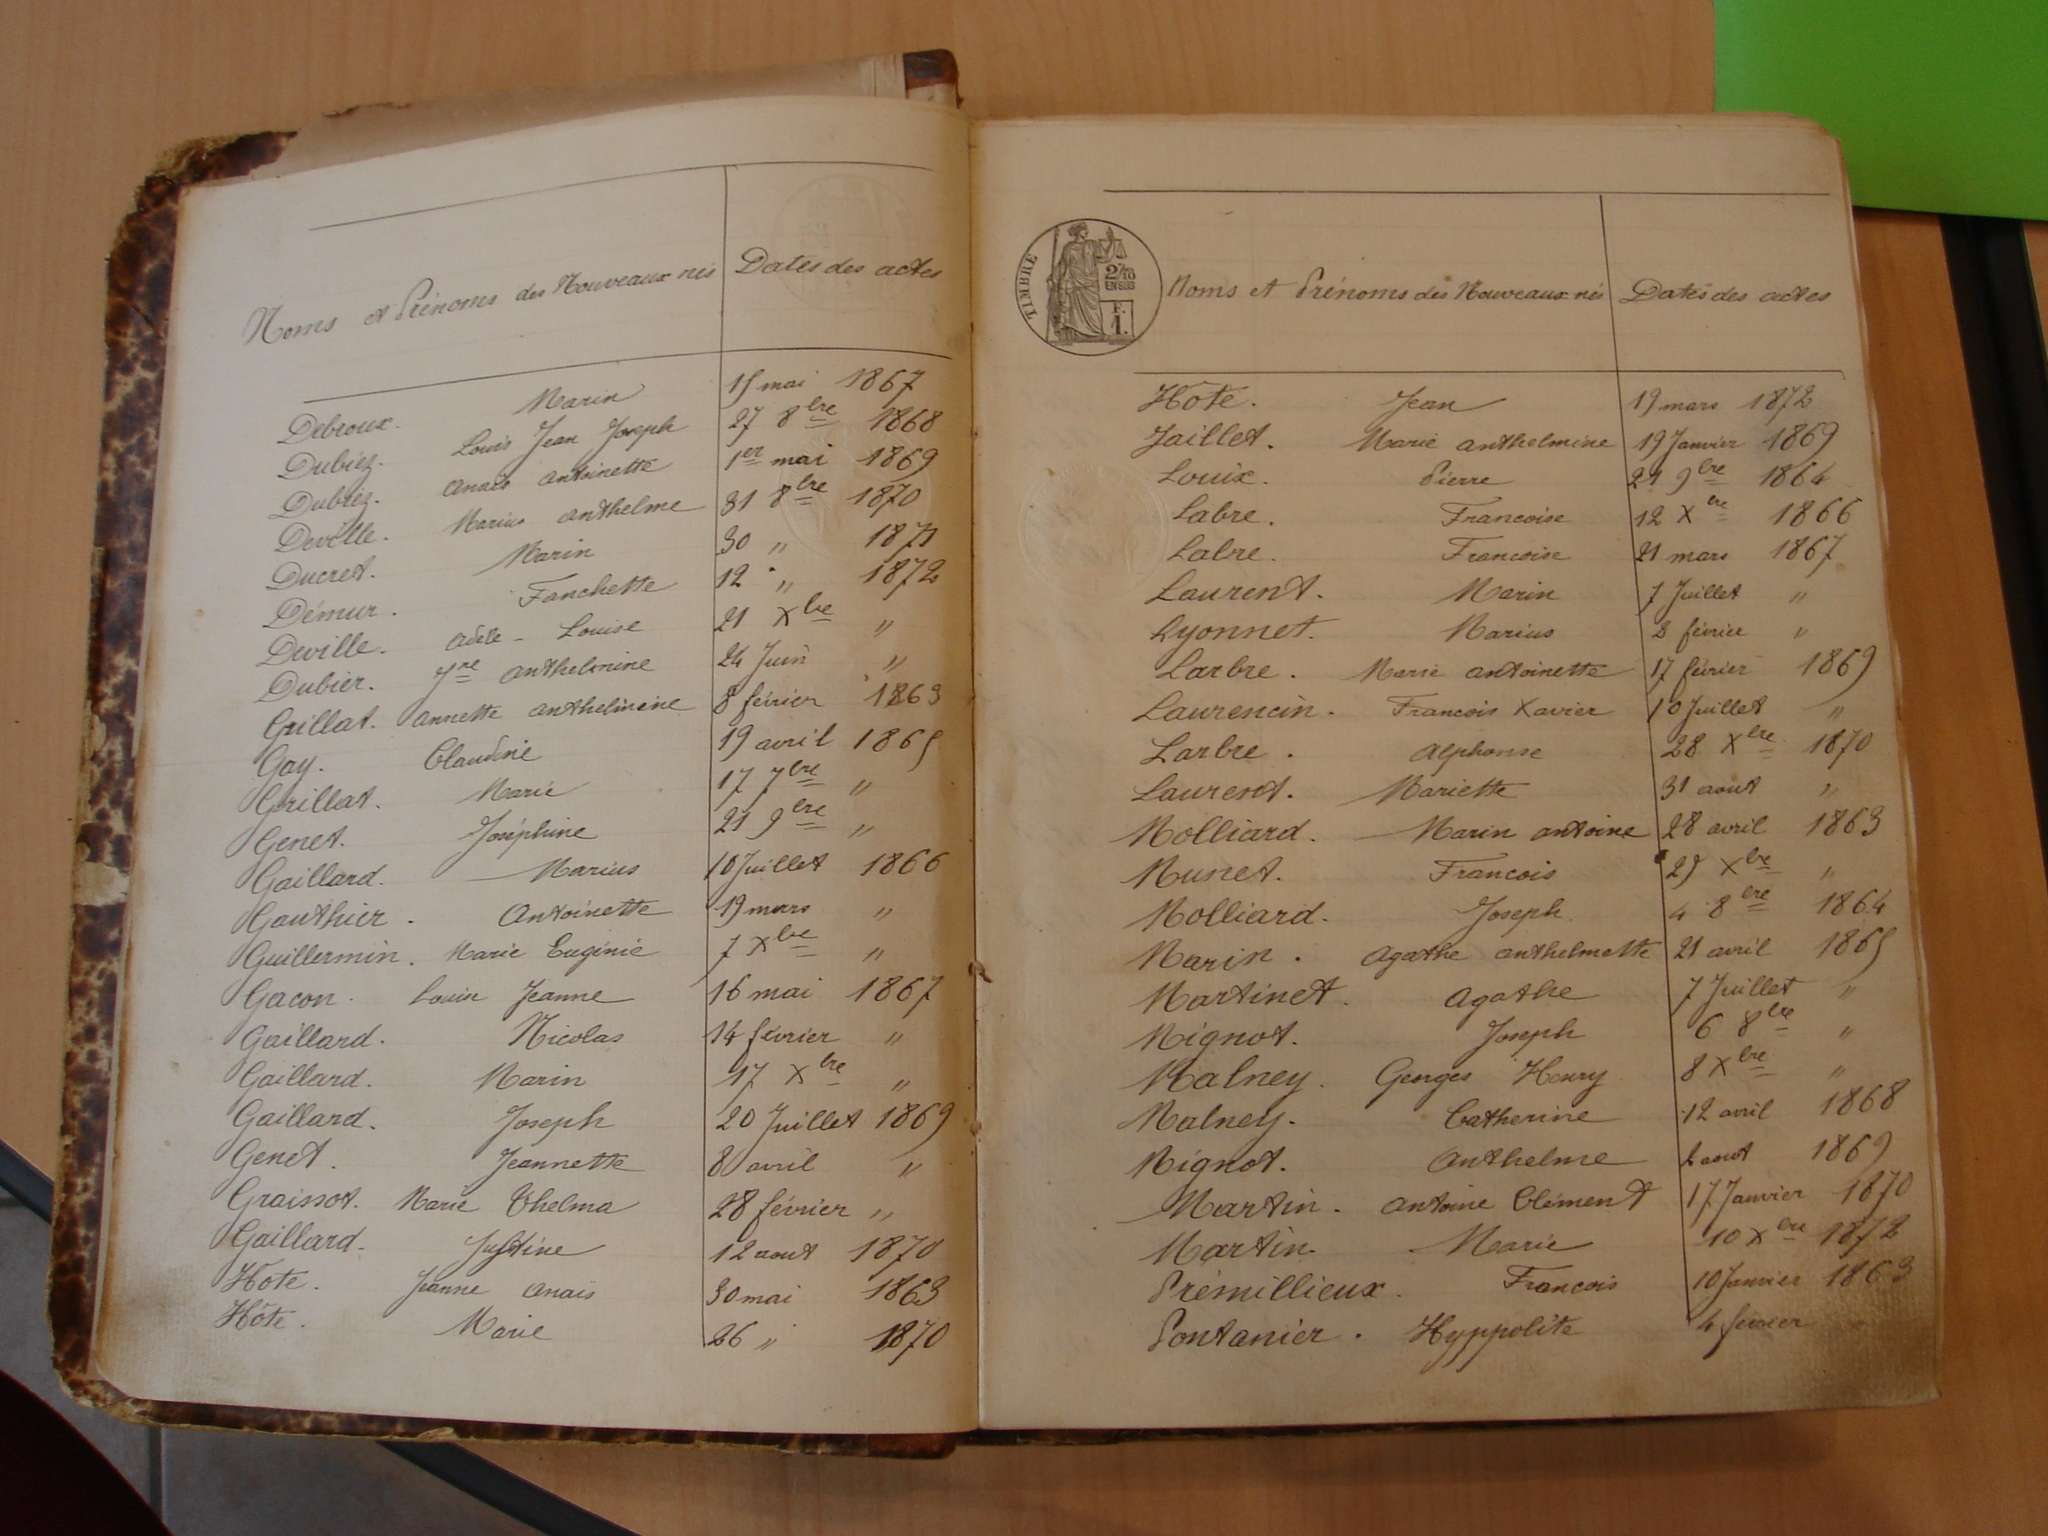 Noms et Prénoms des Nouveaux nés Dates des actes
Debroux. Marin 15 mai 1867
Dubiez. Louis Jean Joseph 27 8bre 1868
Dubiez. Anais Antoinette 1er mai 1869
Deville. Marius Anthelme 31 8bre 1870
Ducret. Marin 30 " 1871
Démur. Fanchette 12 " 1872
Deville. Adèle - Louise 21 Xbre "
Dubier. Anthelmine 24 Juin "
Grillat. Annette Anthelmine 8 février 1863
Gay. Claudine 19 avril 1865
Grillat. Marie 17 7bre "
Genet. Joséphine 21 9bre "
Gaillard. Marius 10 Juillet 1866
Gauthier. Antoinette 19 mars "
Guillermin. Marie Eugénie 7 Xbre "
Gacon. Louise Jeanne 16 mai 1867
Gaillard. Nicolas 14 février "
Gaillard. Marin 17 Xbre "
Gaillard. Joseph 20 Juillet 1869
Genet. Jeannette 8 avril "
Graissot. Marie Thelma 28 février "
Gaillard. Justine 12 aout 1870
Hote. Jeanne Anais 30 mai 1863
Hôte. Marie 26 " 1870
TIMBRE
2/10
EN SUS
F.
1.
Noms et Prénoms des Nouveaux nés Dates des actes
Hôte. Jean 19 mars 1872
Jaillet. Marie Anthelmine 19 Janvier 1869
Louix. Pierre 29bre 1864
Labre. Francoise 12 Xbre 1866
Labre. Francoise 21 mars 1867
Laurent. Marin 7 Juillet "
Lyonnet. Marius 8 février "
Larbre. Marie Antoinette 17 février 1869
Laurencin. Francois Xavier 10 Juillet "
Larbre. Alphonse 28 Xbre 1870
Laurent. Mariette 31 aout "
Molliard. Marin Antoine 28 avril 1863
Munet. Francois Xbre "
Molliard. Joseph 4 8bre 1864
Marin. Agathe Anthelmette 21 avril 1865
Martinet. Agathe 7 Juillet "
Mignot. Joseph 6 8bre "
Malney. Georges Henry 8 Xbre "
Malney. Catherine 12 avril 1868
Mignot. Anthelme aout 1869
Martin. Antoine Clément 17 Janvier 1870
Martin. Marie 10 Xbre 1872
Prémillieux. Francois 10 Janvier 1863
Pontanier. Hyppolite 4 février